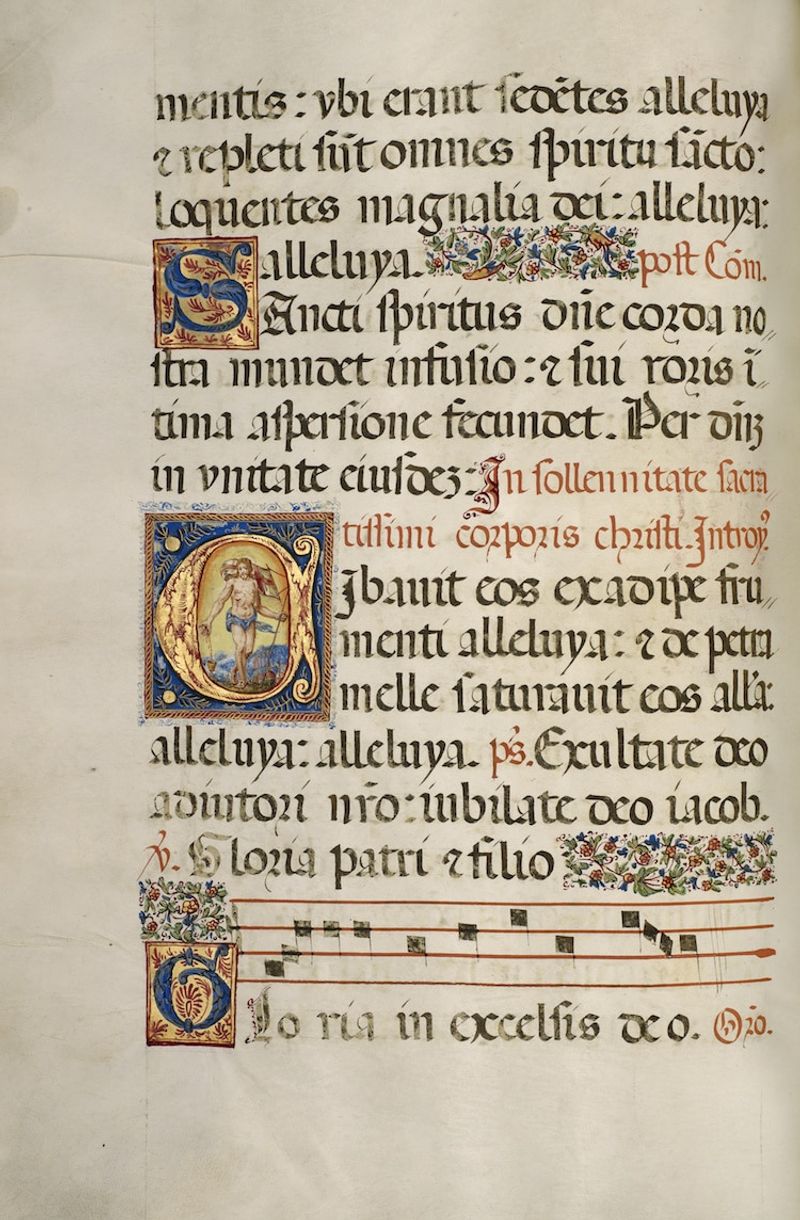 mentis: vbi erant sedētes alleluya
⁊ repleti sūt omnes spiritu sācto:
loquentes magnalia dei: alleluya:
alleluya. post Cōm.
SAncti spiritus dn̄e corda no„
stra mundet infusio: ⁊ sui roris ī„
tima aspersione fecundet. Per dn̄ꝫ
in vnitate eiusdeꝫ: In sollennitate sacra
tissimi corporis christi. Introy̓.
CJbauit eos ex adipe fru„
menti alleluya: ⁊ de petra
melle saturauit eos all'a:
alleluya: alleluya. ps̄. Exultate deo
adiutori nr̄o: iubilate deo iacob.
℣. Gloria patri ⁊ filio
GLo ria in excelsis deo. Orō.